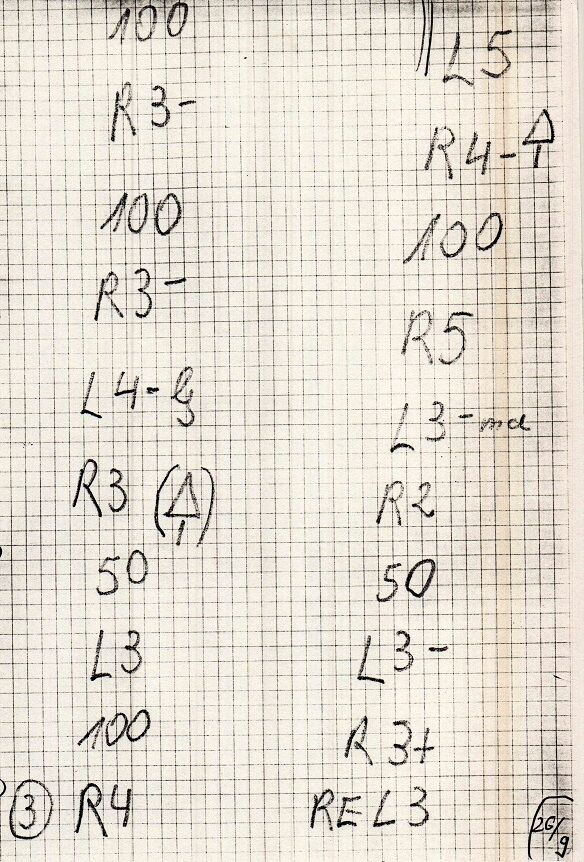 100
R3-
100
R3-
L4-
R3
50
L3
100
3 R4
L5
R4-
100
R5
L3-md
R2
50
L3-
R3+
REL3
26/9